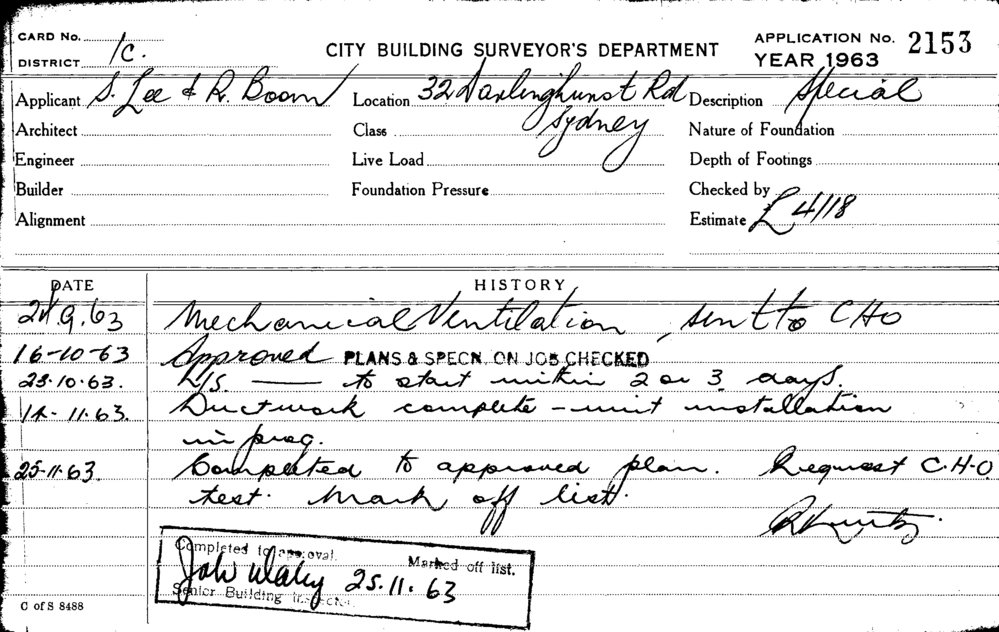 CARD No.
DISTRICT 1c.
CITY BUILDING SURVEYOR'S DEPARTMENT
APPLICATION No. 2153
YEAR 1963
Applicant S. Lee & R. Boom Location 32 Darlinghurst Rd Description Special
Architect Class Sydney Nature of Foundation
Engineer Live Load Depth of Footings
Builder Foundation Pressure Checked by
Alignment Estimate £4118
DATE HISTORY
9.63 Mechanical Ventilation sent to CHO
16-10-63 Approved PLANS & SPECN. ON JOB CHECKED
23.10.63. to start within 2 or 3 days.
14-11.63. Ductwork complete - unit installation
in prog.
25.11.63. Completed to approved plan. Request C.H.O.
test. Mark off list.
Completed to approval. Marked off list.
25.11.63
Senior Building Inspector
C of S 8488